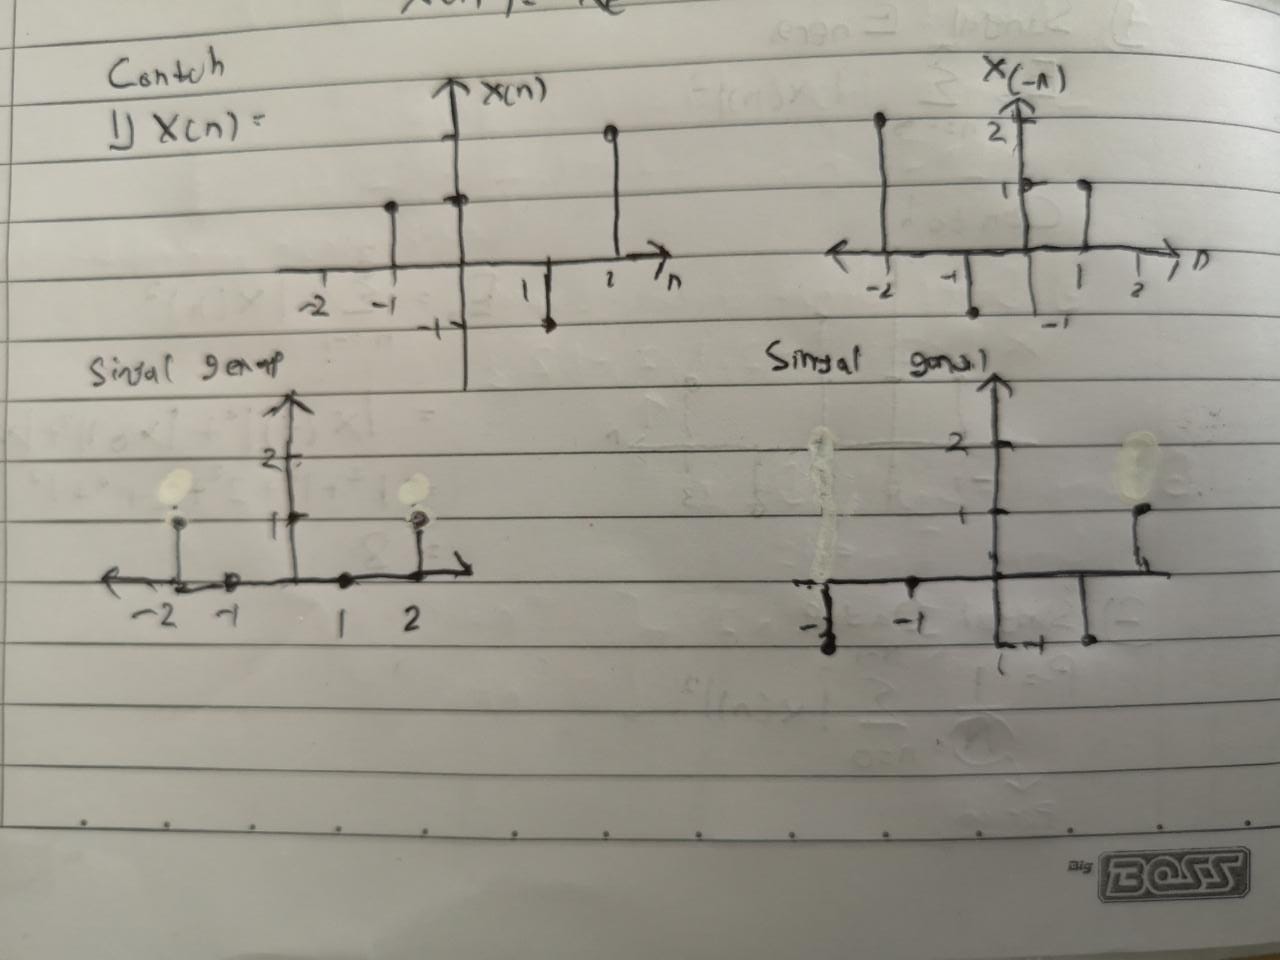 Contoh
1) X(n) =
X(n)
-2 -1 1 2 n
-1
X(-n)
2
1
-2 -1 1 2 n
-1
Sinyal genap
2
1
-2 -1 1 2
Sinyal ganjil
2
1
-1
-1
Big BOSS